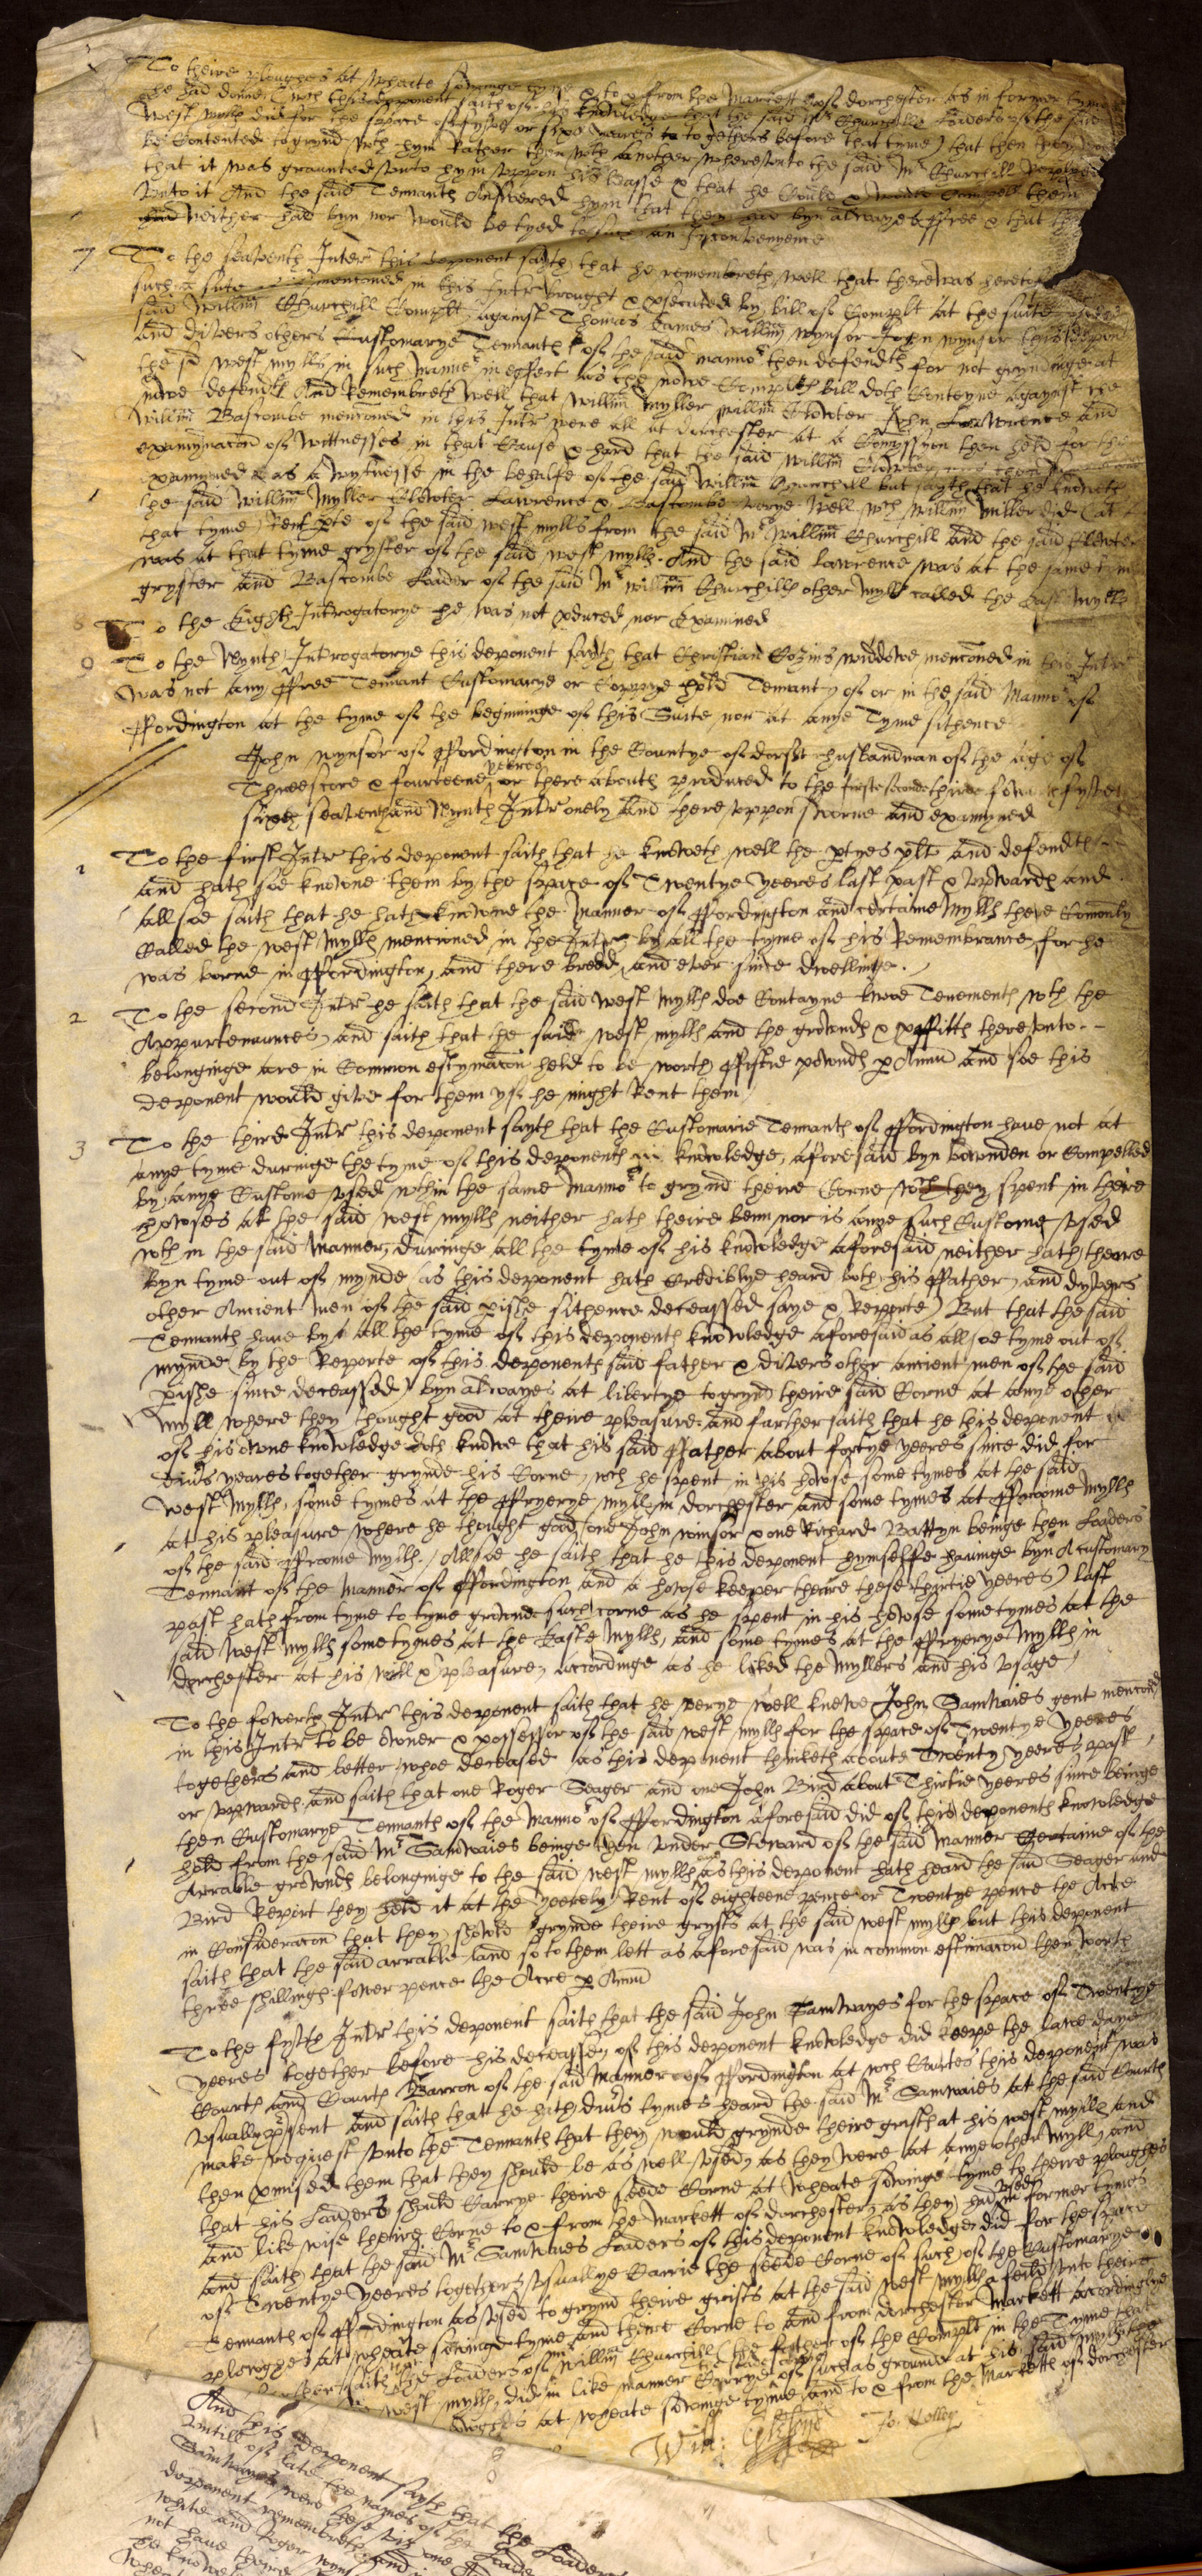 To theire ploughes at wheate sowinge tyme & to & from the Markett of dorchester as in former tymes
he had donne (wch this deponent saith of his knowledge that the said Mr Churchills Loaders of the said
West mylls did for the space of fyve or sixe yeares to togethers before that tyme) that then they would
be Contented to grynd wth hym Rather then wth another wherevnto the said Mr Churchill Replyed
that it was graunted vnto hym vppon his Lease & that he Could & would Compell them
vnto it And the said Tennants Answered hym that they had byn alwayes ffree & that they
neither had byn nor would be tyed to such an Inconvenyence
7 To the seaventh Interr this deponent sayth that he remembreth well that there was heretofore
such a suite mencioned in this Interr brought & psecuted by bill of Complt at the suite of the
said Willm Churchill Complt against Thomas Eames Willm Wynsor John Wynsor this deponent
and divers others Customarye Tennants of the said mannor then defendts for not gryndinge at
the sd West mylls in such manner in effect as the nowe Complts bill doth Conteyne against the
nowe defendts And Remembreth well that Willm Myller Willm Clowter John Lawrence and
Willm Bascombe mencioned in this Interr were all at dorchester at a Comyssyon then held for the
examynacon of wittnesses in that Cause & hard that the said Willm Clowter was then
examyned as a wytnesse in the behalfe of the said Willm Churchill but sayth that he knoweth
the said Willm Myller Clowter Lawrence & Bascombe verye well wch Willm Miller did (at
that tyme) Rent pte of the said west mylls from the said Mr Willm Churchill And the said Clowter
was at that tyme gryster of the said west mylls. And the said Lawrence was at the same tyme
gryster and Bascombe Loader of the said Mr Willm Churchills other mylls called the East Mylls
8 To the Eighth Interrogatorye he was not pduced nor Examined
9 To the Nynth Interrogatorye this deponent sayth that Christian Cozins widdowe mencioned in this Interr
was not any ffree Tennant Customarye or Coppye hold Tennant of or in the said Mannor of
ffordington at the tyme of the beginninge of this Suite nor at anye Tyme sithence
John Wynsor of ffordington in the Countye of dorset husbandman of the age of
Threescore & fourteene yeeres or there abouts produced to the firste seconde thirde fowerth fyveth
sixth seaventh and Nynth Interr onely And there vppon sworne and examyned
1 To the first Interr this deponent saith that he knoweth well the ptyes plt and defendts
and hath soe knowne them by the space of Twentye yeeres last past & vpwards and
allsoe saith that he hath knowne the Manner of ffordington and certaine Mylls there Comonly
Called the West Mylls mencioned in the Interr by all the tyme of his Remembrance, for he
was borne in ffordington, and there breed, and ever since dwellinge.
2 To the second Interr he saith that the said West Mylls doe Contayne twoe Tenements wth the
Appurtenaunces, and saith that the said west mylls and the grownds & pffitts there vnto
belonginge are in Common estymacon held to be worth ffiftie pownds p Annu And soe this
deponent would give for them yf he might Rent them
3 To the third Interr this deponent sayth that the Customarie Tennants of ffordington have not at
anye tyme duringe the tyme of this deponents knowledge aforesaid byn bownden or Compelled
by anye Custome vsed wthin the same Mannor to grynd theire Corne wch they spent in theire
howses at the said West mylls neither hath theire benn nor is anye such Custome vsed
wth in the said Manner, duringe all the tyme of his knowledge aforesaid neither hath theire
byn tyme out of mynde (as this deponent hath Crediblye heard both his ffather and dyvers
other Ancient men of the said pishe sithence deceassed saye & Reporte) But that the said
Tennants have by all the tyme of this deponents knowledge aforesaid as allsoe tyme out of
mynde by the Reporte of this deponents said father & divers other ancient men of the said
pishe since deceassed) byn alwayes at libertye to grynd theire said Corne at anye other
myll where they thought good at theire pleasure and farther saith that he this deponent
of his owne knowledge doth knowe that his said ffather about fortye yeeres since did for
divs yeares together grynde his Corne, wch he spent in his howse some tymes at the said
West Mylls, some tymes at the ffryerye mylls in dorchester and some tymes at ffroome Mylls
at his pleasure, where he thought good (one John Winsor & one Richard Battyn beinge then Loaders
of the said ffroome Mylls. / Allsoe he saith that he this deponent hymselffe havinge byn A customary
Tennant of the Manner of ffordington and a howse keeper theire these thirtie yeeres last
past hath from tyme to tyme grownd such corne as he spent in his howse sometymes at the
said West Mylls some tymes at the Easte Mylls, and some tymes at the ffryerye Mylls in
dorchester at his will & pleasure, accordinge as he liked the Myllers and his vsage
To the fowerth Interr this deponent saith that he verye well knewe John Samwaies gent mencioned
in this Interr to be owner & possessor of the said west mylls for the space of Twentye yeeres
togethers and better whoe deceased as this deponent thinketh aboute Twenty yeeres past
or vpwards and saith that one Roger Seager and one John Bird about Thirtie yeeres since beinge
then Customarye Tennants of the Mannor of ffordington aforesaid did of this deponents knowledge
hold from the said Mr Samwaies beinge then vnder Steward of the said Manner Certaine of the
Arrable grownds belonginge to the said west mylls and as this deponent hath heard the said Seager and
Bird Report they held it at the yeerely Rent of eighteene pence or Twentye pence the Acre
in Consideracon that they should grynde theire grysts at the said west mylls, but this deponent
saith that the said arrable land so to them lett as aforesaid was in common estimacon then worth
three shillings fower pence the Acre p Annu
To the fyfth Interr this deponent saith that the said John Samwayes for the space of Twentye
yeeres together before his deceasse, of this deponents knowledge did keepe the lawe daye
Courts and Courts Barron of the said Manner of ffordington at wch Courtes this deponent was
vsually psent and saith that he hath divs tymes heard the said Mr Samwaies at the said Courts
make request vnto the Tennants that they would grynde theire grists at his west mylls and
then pmised them that they should be as well vsed, as they were at anye other Myll, and
that his Loaders should Carrye theire seede Corne at Wheate sowinge tyme to theire ploughes
and likewise theire Corne to & from the Markett of dorchester, as they had vsed in former tymes
and saith that the said Mr Samwaies Loaders of this deponents knowledge did for the space
of Twentye yeeres together vsuallye Carrie the seede Corne of such of the Customarye
Tennants of ffordington as vsed to grynd theire grists at the said West mylls a feild vnto theire
ploughes at wheate sowinge tyme and theire Corne to and from dorchester Markett accordinglye
saith the Loaders of Mr Willm Churchill (the father of the Complt in the Tyme that
West mylls, did in like manner Carrye the seede Corne of such as grownd at his said mylls
ploughes at wheate sowinge tyme and to & from the Marketts of dorchester
Will:
Jo:
And this deponent sayth that the Loaders
vntill of late the names of the Loaders
Samwayes were these viz one
deponent remembreth and
White and Roger Wyns
not have theire
he knowe